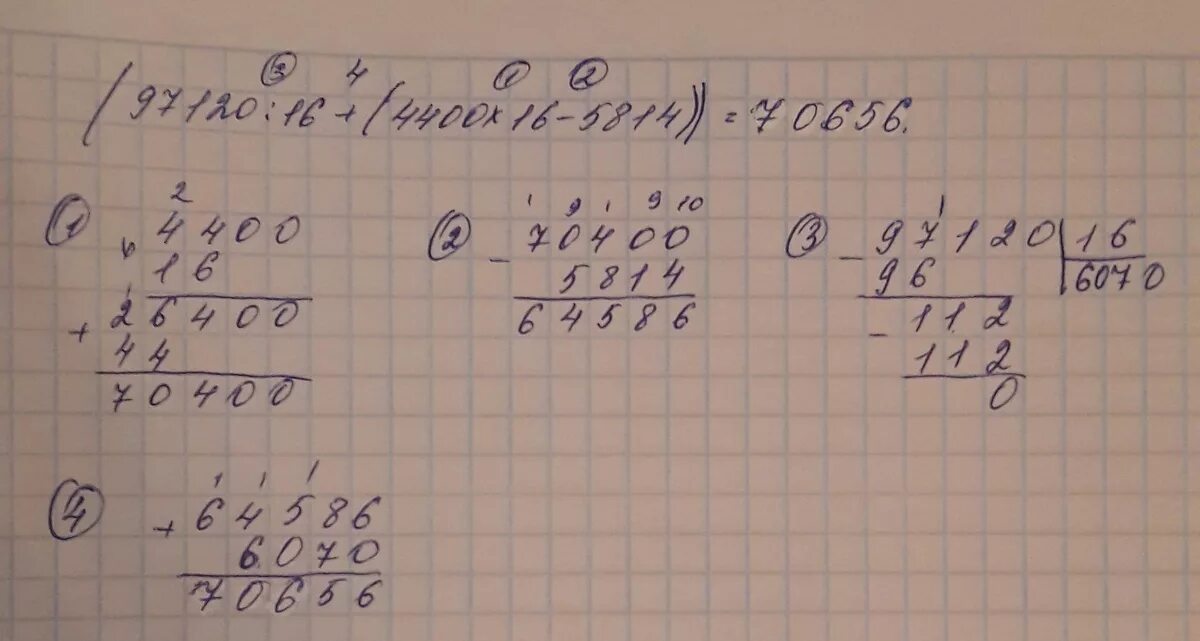 3 4 1 2
(97120:16+(4400×16-5814))=70656.
1
2
4400
16
26400
+
44
70400
2
1 9 1 9 10
- 70400
5814
64586
3
- 97120 16
96 6070
- 112
112
0
4
1 1 1
+ 64586
6070
70656